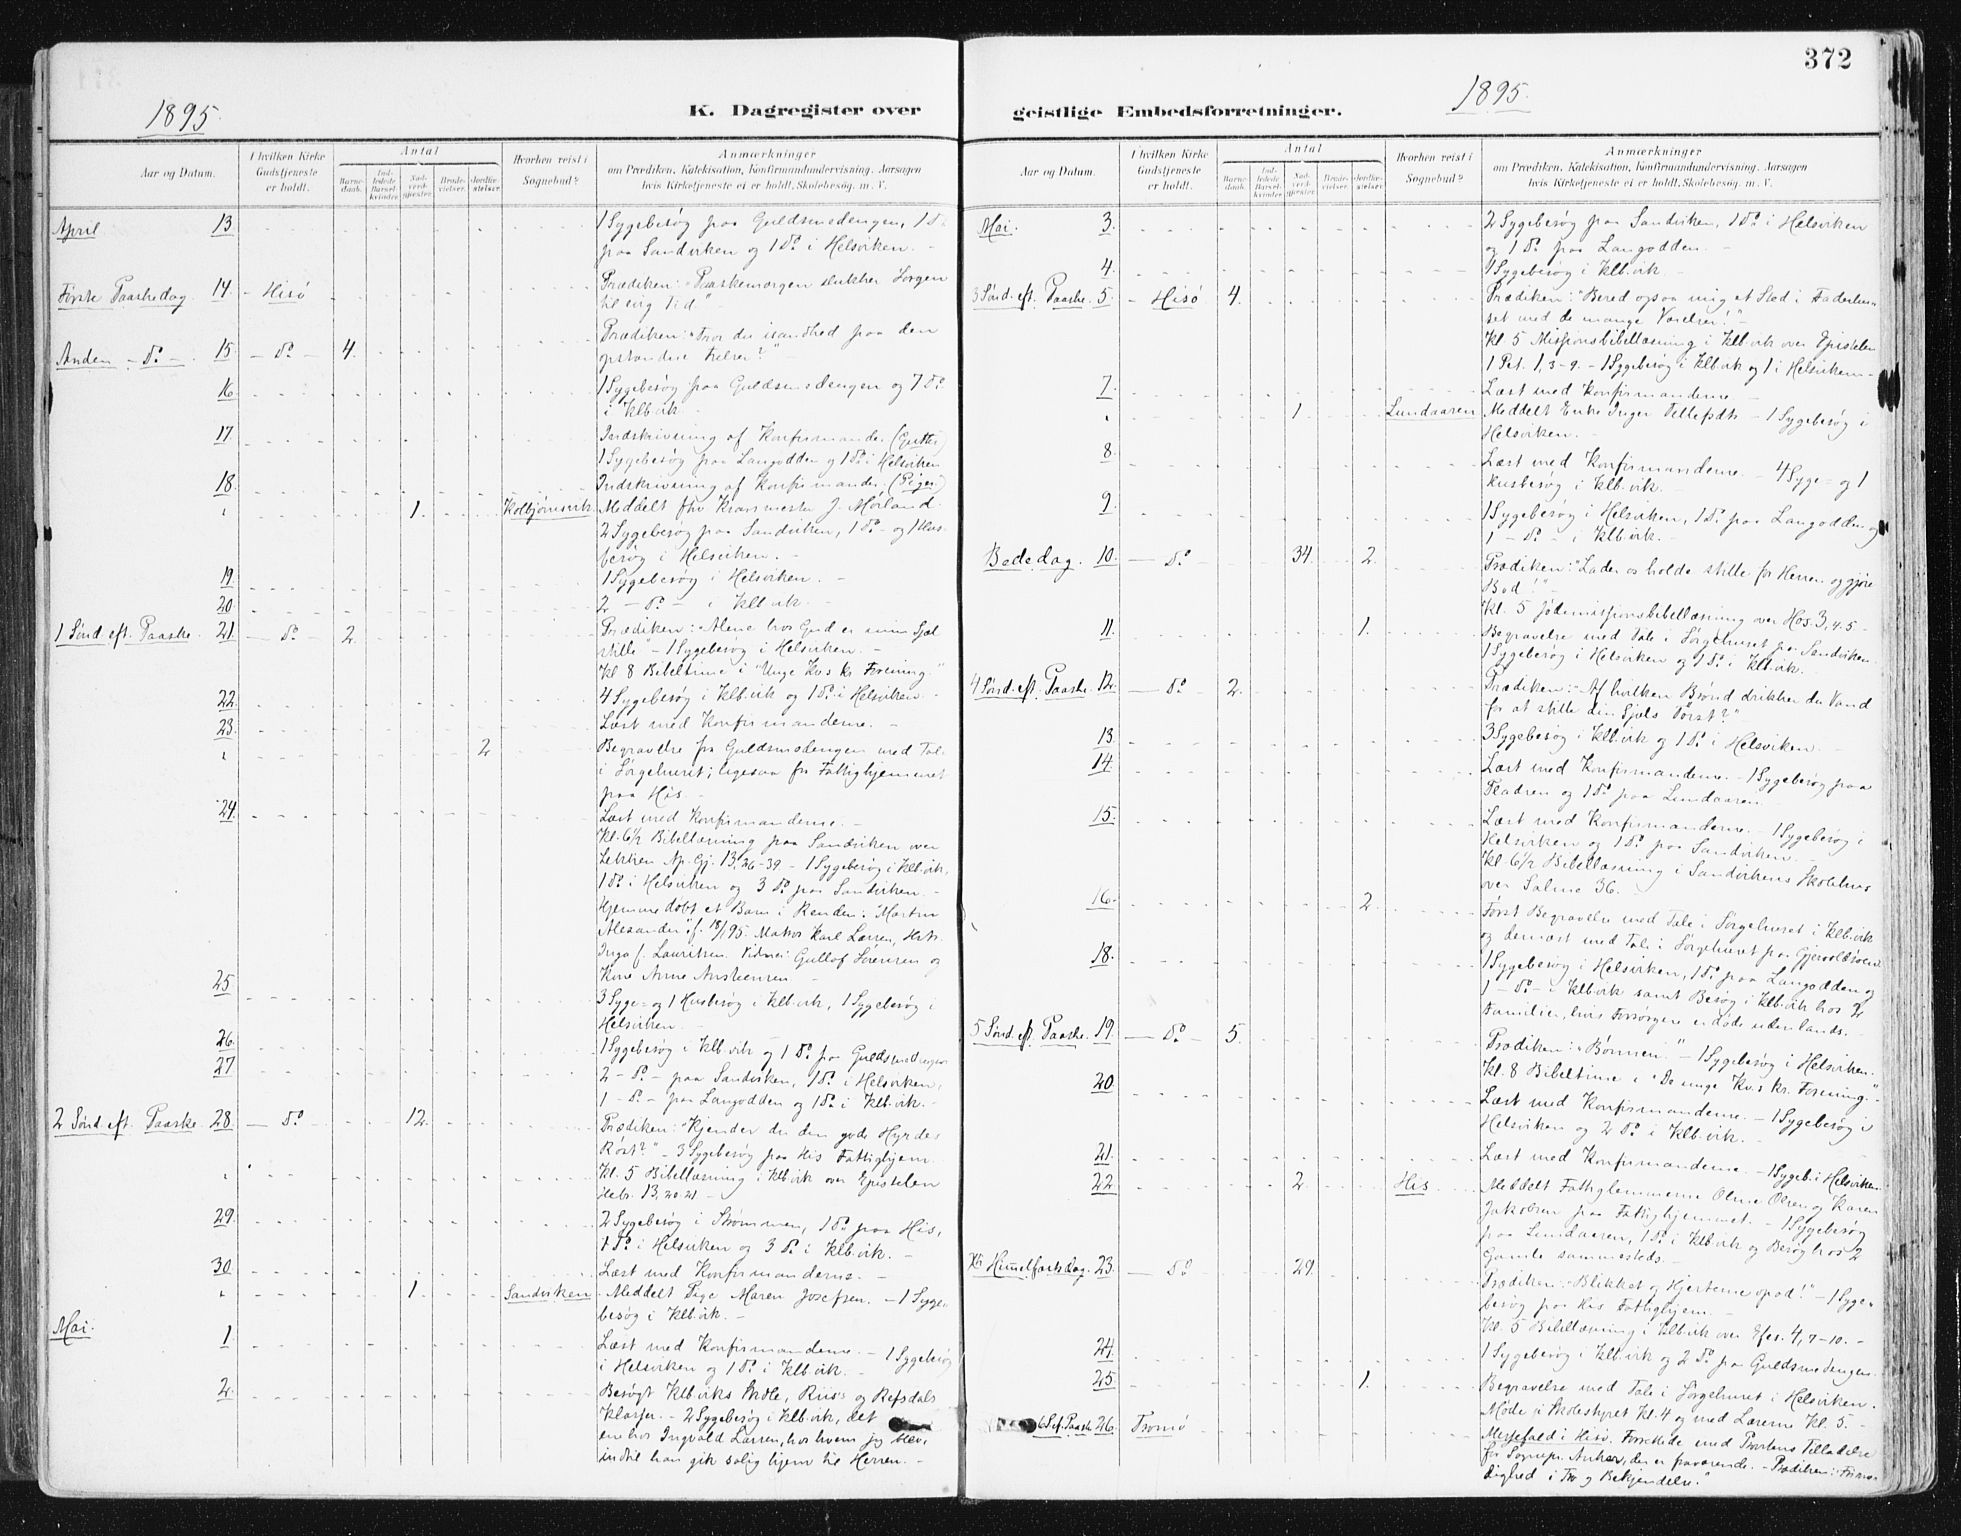 372
1895.
K. Dagregister over
geistlige Embedsforretninger.
1895.
Aar og Datum.
I hvilken Kirke Gudstjeneste er holdt.
Antal
Barnedaab.
Indledede Barselkvinder.
Nadverdgjester.
Brudevielser.
Jordfæstelser.
Hvorhen reist i Sognebud?
Anmærkninger
om Prædiken, Katekisation, Konfirmandundervisning, Aarsagen
hvis Kirketjeneste ei er holdt, Skolebesøg, m. V.
April 13 1 Sygebesøg paa Guldsmedengen, 1 Do
paa Sandviken og 1 Do i Helsviken. -
Første Paaskedag 14. - Hisö Prædiken: "Paaskemorgen slukker Sorgen
til evig Tid" -
Anden - Do - 15. - Do - 4. Prædiken: "Tror du isandhed paa den
opstandne Frelser?"
16. 1 Sygebesøg paa Guldsmedengen og 7 Do
i Klb.vik.
17. Indskrivning af Konfirmander (Gutter)
1 Sygebesøg paa Langodden og 1 Do i Helsviken
18. Indskrivning af Konfirmander. (Piger)
1. Kolbjørnsvik. Meddelt J. Mörland.
2 Sygebesøg paa Sandviken, 1 Do - og 1 Hus-
besøg i Helsviken. -
19. 1 Sygebesøg i Helsviken. -
20. 2 - Do - i Klb.vik. -
1 Sønd. eft. Paaske. 21. - Do - 2. Prædiken: "Alene hos Gud er min Sjæl
stille" - 1 Sygebesøg i Helsviken. -
Kl 8 Bibeltime i "Unge Kv.s Kr. Forening."
22. 4 Sygebesøg i Klb.vik og 1 Do i Helsviken. -
23. Læst med Konfirmanderne. -
2 Begravelse fra Guldsmedengen med Tale
i Sørgehuset; ligesaa fra Fattighjemmet
paa His. -
24. Læst med Konfirmanderne. -
Kl. 6½ Bibellæsning paa Sandviken over
Lektien Ap. Gj. 13, 26-39 - 1 Sygebesøg i Klb.vik,
1 Do i Helsviken og 3 Do paa Sandviken. -
Hjemmedøbt et Barn i Renden: "Martin
Alexander" f. 18/1 95. Karl Larsen,
Inga f. Lauritsen. Gullof Sørensen og
Kone Anne
25 3 Syge- og 1 Husbesøg i Klb.vik, 1 Sygebesøg i
Helsviken. -
26. 1 Sygebesøg i Klb.vik og 1 Do paa Guldsmedengen
27 2 - Do - paa Sandviken, 1 Do i Helsviken,
1 - Do - paa Langodden og 1 Do i Klb.vik. -
2 Sønd. eft. Paaske. 28. - Do - 12. Prædiken: "Kjender du den gode Hyrdes
Röst?" - 3 Sygebesøg paa His Fattighjem.
Kl. 5 Bibellæsning i Klb.vik over Epistelen
Hebr. 13, 20 21 -
29. 2 Sygebesøg i Strømmen, 1 Do paa His,
1 Do i Helsviken og 3 Do i Klb.vik. -
30. Læst med Konfirmanderne. -
1 Sandviken Meddelt Pige Maren Josefsen. - 1 Syge-
besøg i Klb.vik. -
Mai. 1. Læst med Konfirmanderne. - 1 Sygebesøg
i Helsviken og 1 Do i Klb.vik. -
2. Besøgt Klb.viks Skole, Riis's og Refsdals
Klasser. - 2 Sygebesøg i Klb.vik, det
ene hos Ingvald Larsen, hos hvem jeg blev,
indtil han gik salig hjem til Herren. -
Aar og Datum.
I hvilken Kirke Gudstjeneste er holdt.
Antal
Barnedaab.
Indledede Barselkvinder.
Nadverdgjester.
Brudevielser.
Jordfæstelser.
Hvorhen reist i Sognebud?
Anmærkninger
om Prædiken, Katekisation, Konfirmandundervisning, Aarsagen
hvis Kirketjeneste ei er holdt, Skolebesøg, m. V.
Mai. 3. 2 Sygebesøg paa Sandviken, 1 Do i Helsviken
og 1 Do paa Langodden. -
4. 1 Sygebesøg i Klb.vik. -
3 Sønd. eft. Paaske. 5. - Hisö 4. Prædiken: "Bered ogsaa mig et Sted i Faderhu-
set med de mange Værelser!" -
Kl. 5 Missionsbibellæsning i Klb.vik over Epistelen
1 Pet. 1, 3-9. - 1 Sygebesøg i Klb.vik og 1 i Helsviken -
7. Læst med Konfirmanderne -
1 Lundaaren Meddelt Enke Inger - 1 Sygebesøg i
Helsviken. -
8. Læst med Konfirmanderne. - 4 Syge- og 1
Husbesøg i Klb.vik. -
9. 1 Sygebesøg i Helsviken, 1 Do paa Langodden og
1 - Do - i Klb.vik. -
Bededag. 10. - Do 34. 2. Prædiken: "Lader os holde stille for Herren og gjøre
Bod!" -
Kl. 5 Jødemissionsbibellæsning over Hos. 3, 4. 5 -
11. 1. Begravelse med Tale i Sørgehuset paa Sandviken.
1 Sygebesøg i Helsviken og 1 Do i Klb.vik.
4 Sønd. eft. Paaske. 12. - Do - 2. Prædiken: "Af hvilken Brønd drikker du Vand
for at stille din Sjæls Törst?"
13. 3 Sygebesøg i Klb.vik og 1 Do i Helsviken. -
14. Læst med Konfirmanderne. - 1 Sygebesøg paa
Fladen og 1 Do paa Lundaaren -
15. Læst med Konfirmanderne. - 1 Sygebesøg i
Helsviken og 1 Do paa Sandviken. -
Kl. 6½ Bibellæsning i Sandvikens Skolehus
over Salme 36.
16. 2. Først Begravelse med Tale i Sørgehuset i Klb.vik
og dernæst med Tale i Sørgehuset paa
18. 1 Sygebesøg i Helsviken, 1 Do paa Langodden og
1 - Do - i Klb.vik samt Besøg i Klb.vik hos 2
Familier, hvis Forsørgere er døde udenlands. -
5 Sønd. eft. Paaske. 19. - Do - 5. Prædiken: "Bønnen." - 1 Sygebesøg i Helsviken.
Kl. 8 Bibeltime i "De unge Kv.s Kr. Forening." -
20. Læst med Konfirmanderne. - 1 Sygebesøg i
Helsviken og 2 Do i Klb.vik. -
21. Læst med Konfirmanderne. - 1 Sygeb. i Helsviken.
22. 2. His Meddelt Fattiglemmerne Olsen og Karen
Jakobsen paa Fattighjemmet. - 1 Sygebesøg
paa Lundaaren, 1 Do i Klb.vik og Besøg hos 2
Gamle sammesteds. -
Kr. Himmelfartsdag. 23. - Do - 29. Prædiken: "Blikket og Hjerterne opad!" - 1 Syge-
besøg paa His Fattighjem. -
Kl. 5 Bibellæsning i Klb.vik over Efes. 4, 7-10. -
24. 1 Sygebesøg i Klb.vik og 2 Do paa Guldsmedengen.
25. 1. Begravelse med Tale i Sørgehuset i Helsviken.
Møde i Skolestyret Kl. 4 og med Lærerne Kl. 5. -
6 S. ef. Paaske 26. Tromö Messefald i Hisö. Forrettede med Provstens Tilladelse
for Sognepr. der er fraværende. - Prædiken: "Frimo-
dighed i Tro og Bekjendelse."